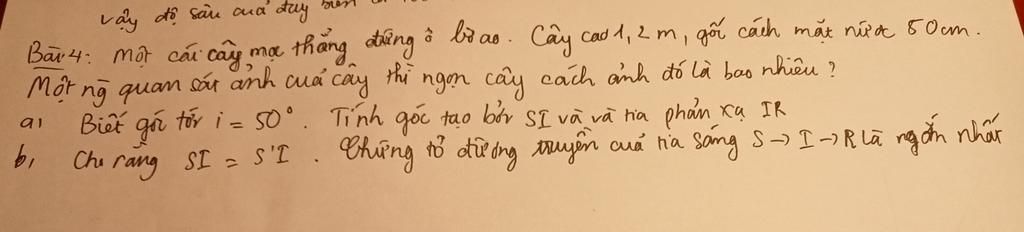 Vậy độ sâu của đáy biển
Bài 4: Một cái cây mọc thẳng đứng ở bờ ao. Cây cao 1,2 m, gốc cách mặt nước 50cm.
Một ng quan sát ảnh của cây thì ngọn cây cách ảnh đó là bao nhiêu?
a, Biết góc tới i = 50°. Tính góc tạo bởi SI và và tia phản xạ IR
b, Chỉ rằng SI = S'I. Chứng tỏ đường truyền của tia sáng S → I → R là ngắn nhất